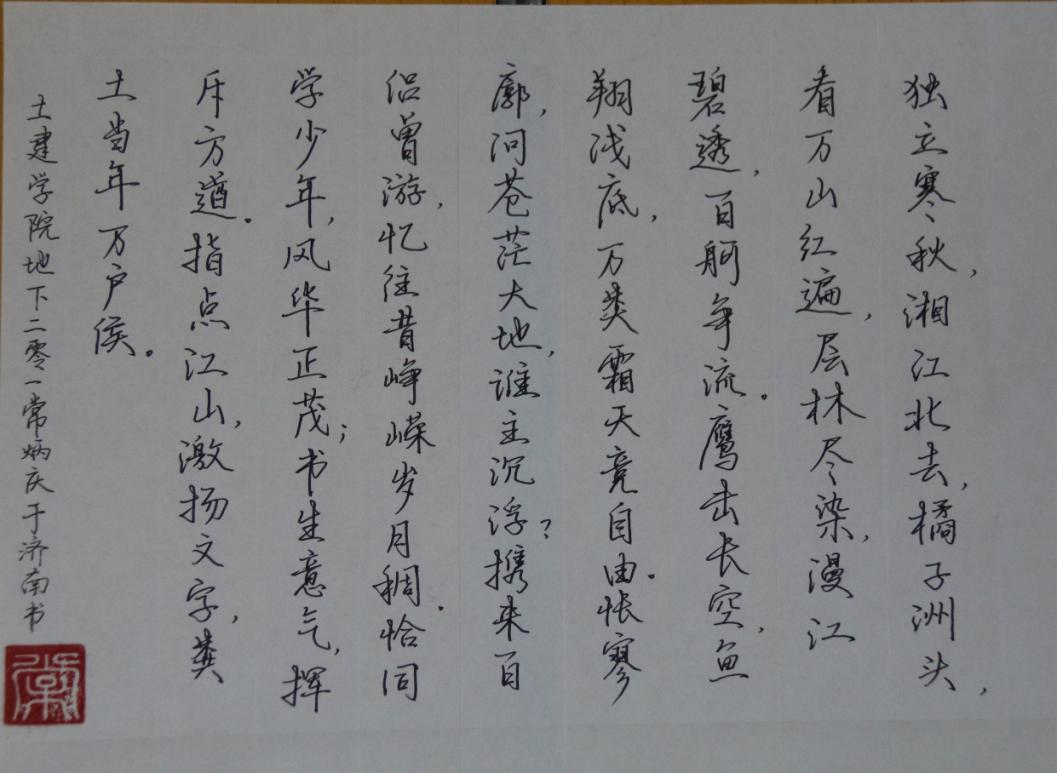 独立寒秋，湘江北去，橘子洲头，
看万山红遍，层林尽染，漫江
碧透，百舸争流。鹰击长空，鱼
翔浅底，万类霜天竞自由。怅寥
廓，问苍茫大地，谁主沉浮？携来百
侣曾游，忆往昔峥嵘岁月稠。恰同
学少年，风华正茂；书生意气，挥
斥方遒。指点江山，激扬文字，粪
土当年万户侯。
土建学院地下二零一常炳庆于济南书